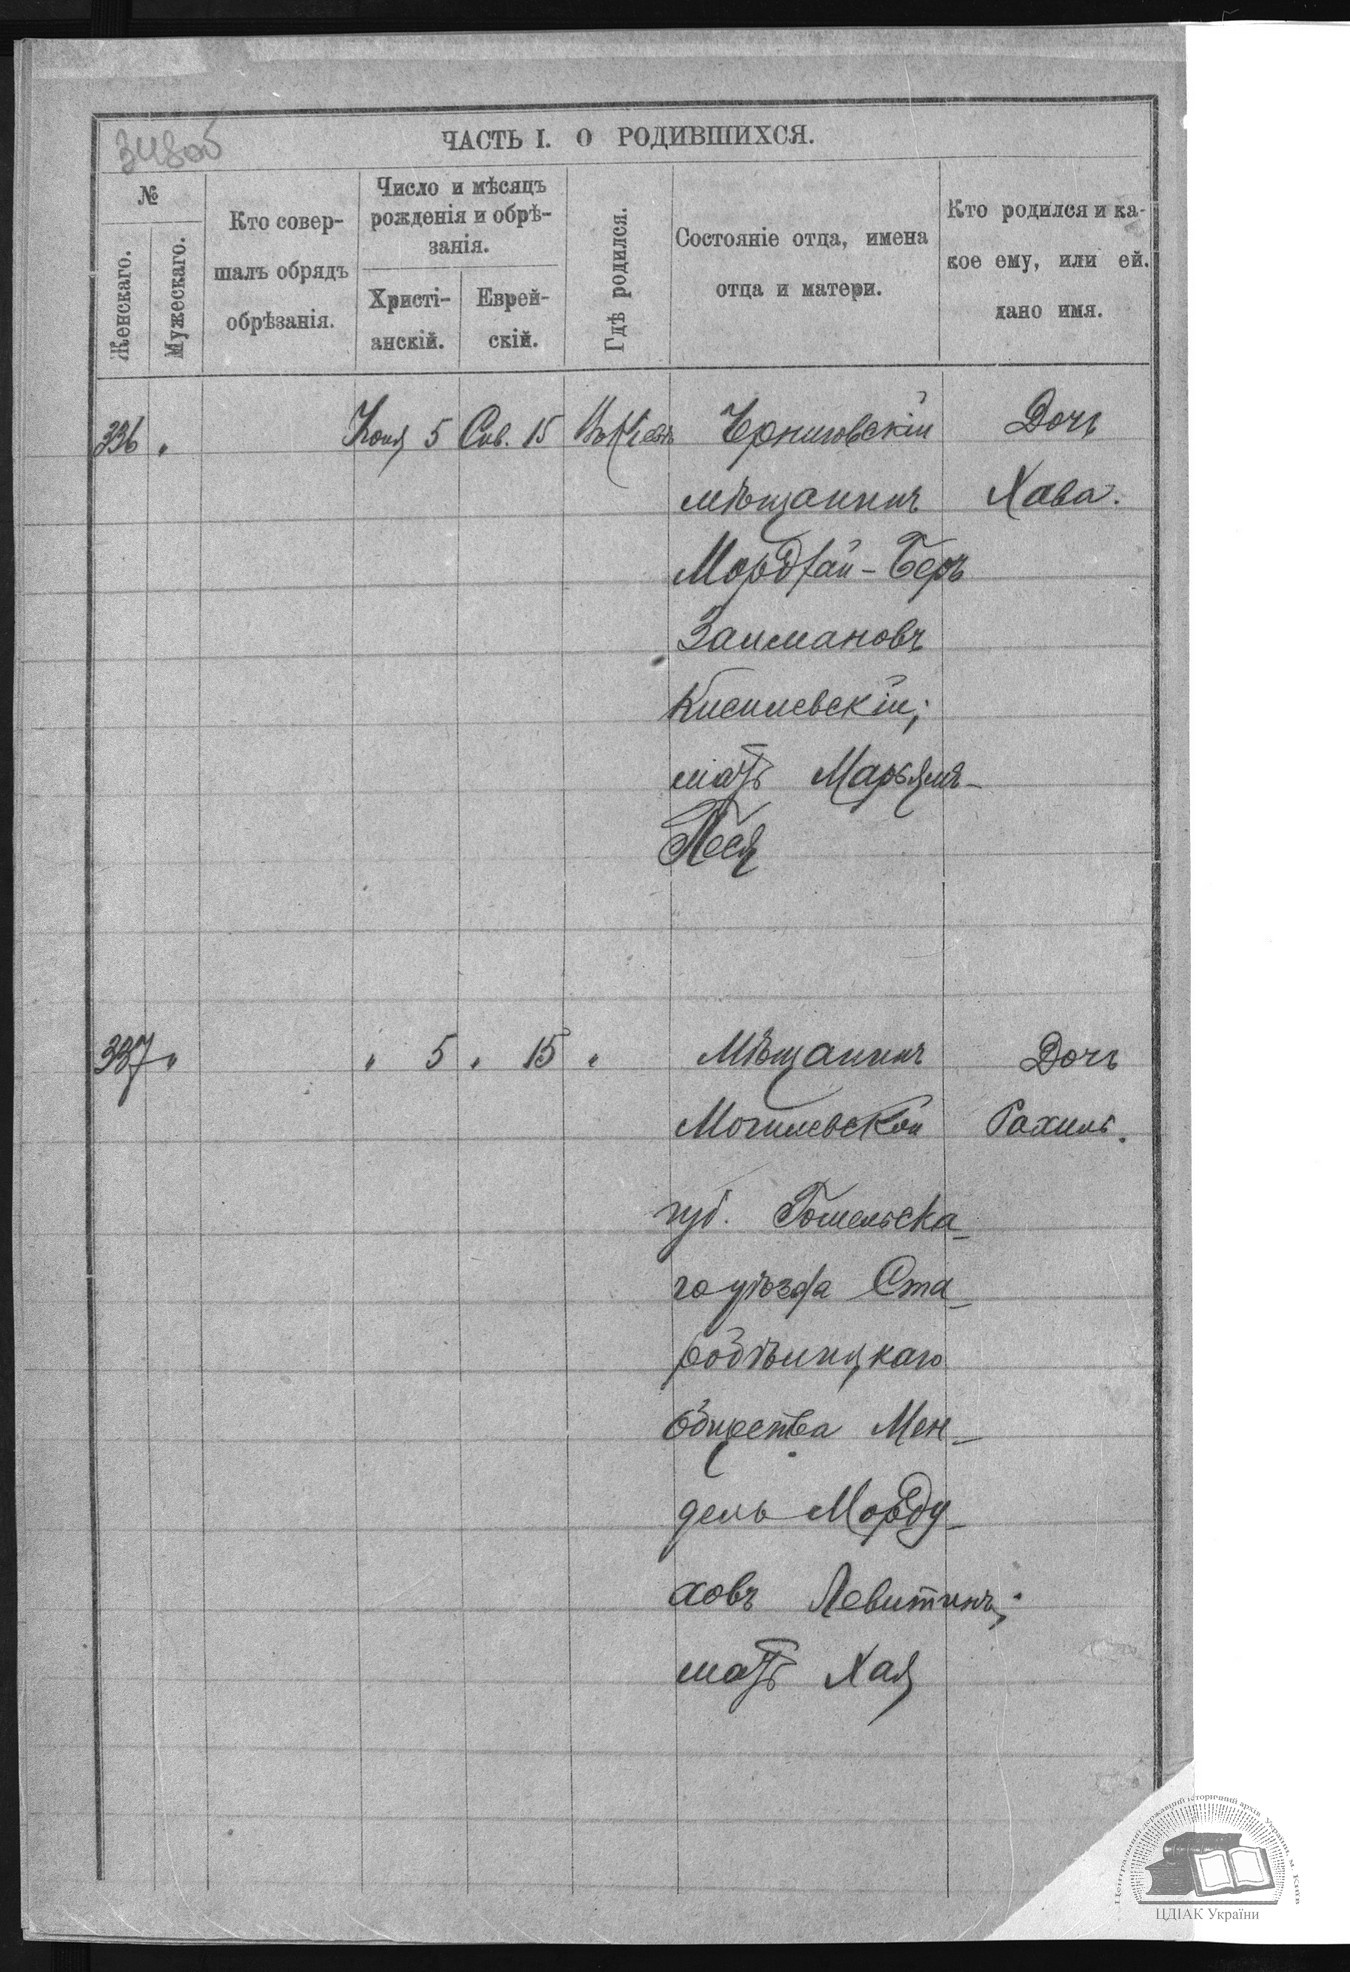 348об
ЧАСТЬ I. О РОДИВШИХСЯ.
№
Женскаго.
Мужескаго.
Кто совер-
шалъ обрядъ
обрѣзанія.
Число и мѣсяцъ
рожденія и обрѣ-
занія.
Христі-
анскій.
Еврей-
скій.
Гдѣ родился.
Состояніе отца, имена
отца и матери.
Кто родился и ка-
кое ему, или ей.
дано имя.
336 „ Іюня 5 Сив. 15 Въ Кіевѣ Черниговскій Дочь
мѣщанинъ Хава.
Мордхай-Беръ
Залмановъ
Кисилевскій;
мать Марьямъ-
Песя
337 „ „ 5 „ 15 „ Мѣщанинъ Дочь
Могилевской Рахиль.
губ. Гомельска-
го уѣзда Ста-
робѣлицкаго
общества Мен-
дель Морду-
ховъ Левитинъ;
мать Хая
Центральний державний історичний архів України, м. Київ
ЦДІАК України